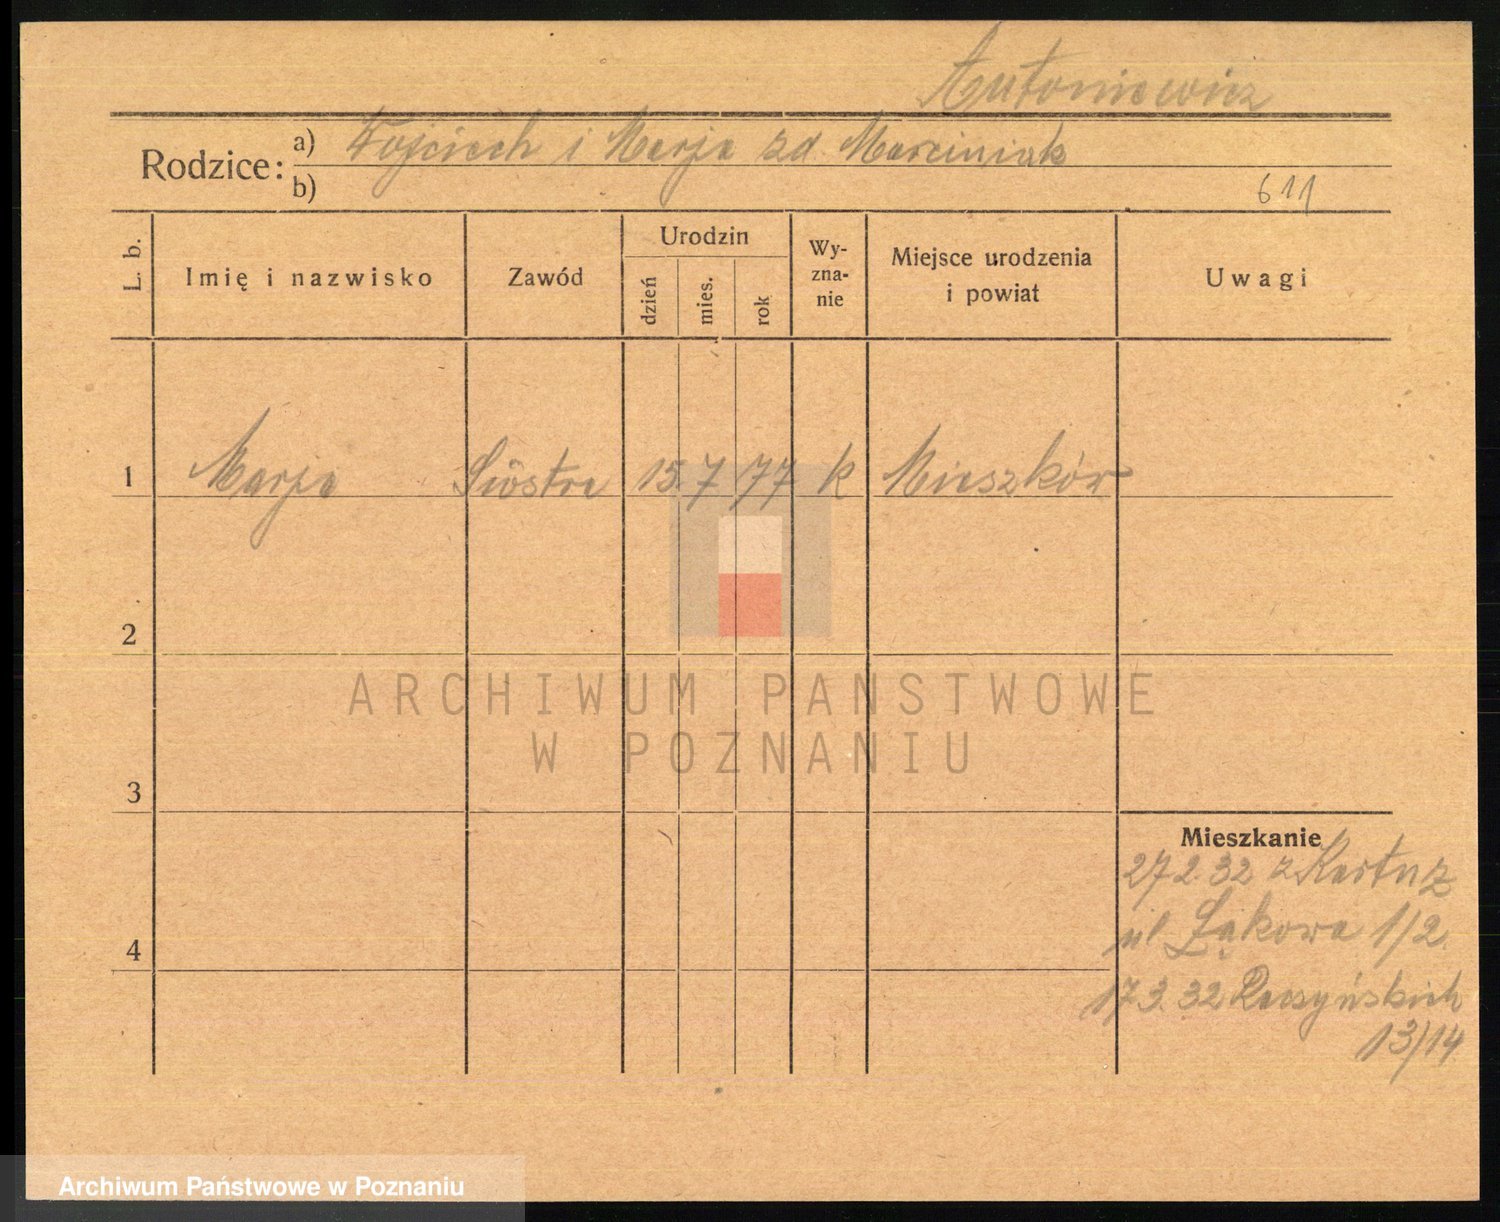 Antoniewicz
Rodzice: a) Wojciech i Marja zd. Marciniak
b)
611
L. b. Imię i nazwisko Zawód Urodzin dzień mies. rok Wy-zna-nie Miejsce urodzenia i powiat Uwagi
1 Marja Siostra 15 7 77 k Mieszków
2
ARCHIWUM PANSTWOWE
W POZNANIU
3
Mieszkanie
27 2. 32 z Kartuz
ul Łąkowa 1/2.
4
17 3. 32 Raczyńskich
13/14
Archiwum Państwowe w Poznaniu